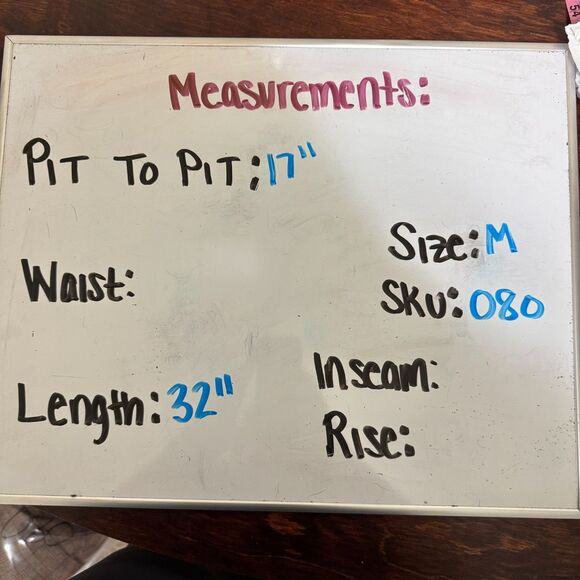 Measurements:
PIT TO PIT: 17"
Size: M
Waist:
SKU: 080
Inseam:
Length: 32"
Rise: